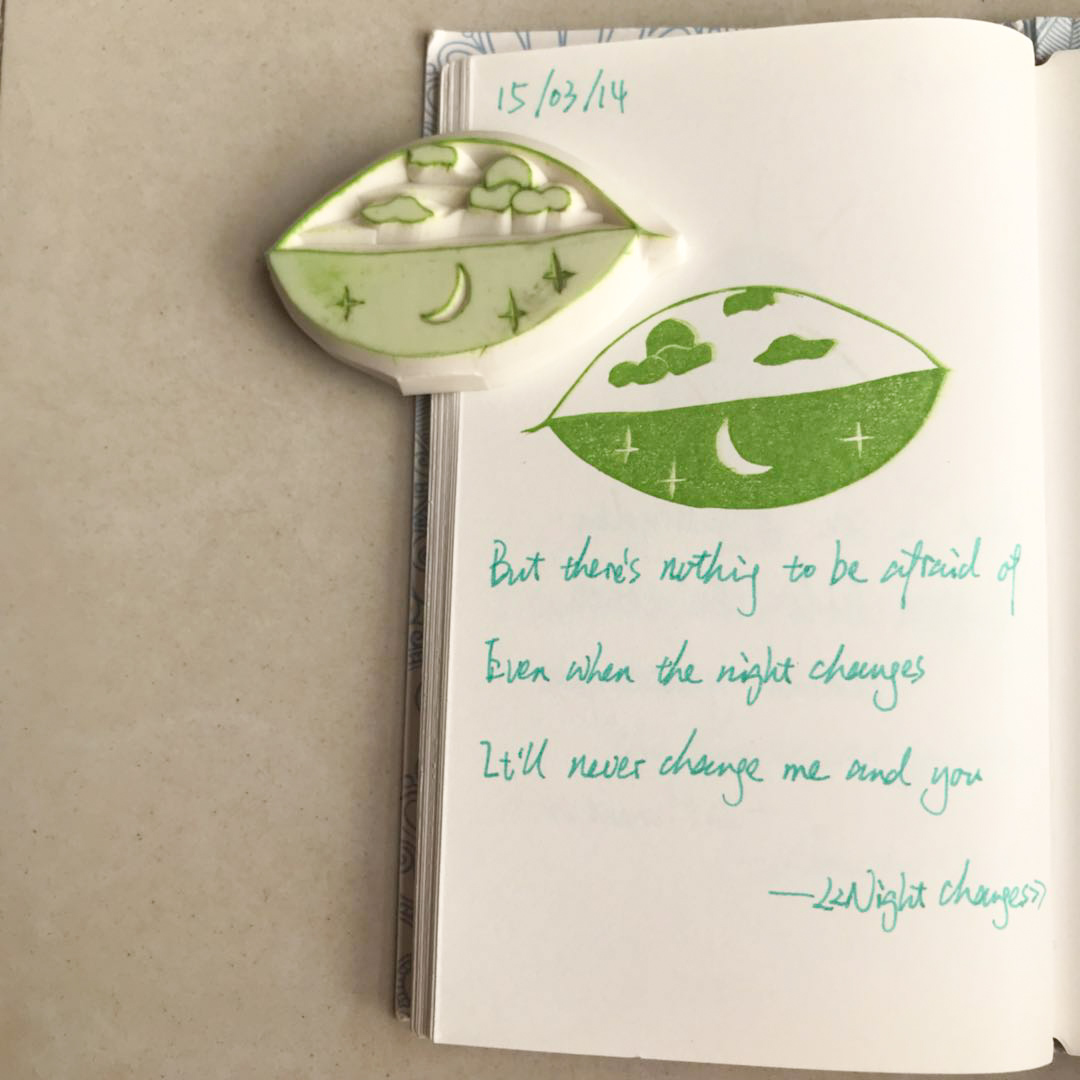 15/03/14
But there's nothing to be afraid of
Even when the night changes
It'll never change me and you
—《Night changes》